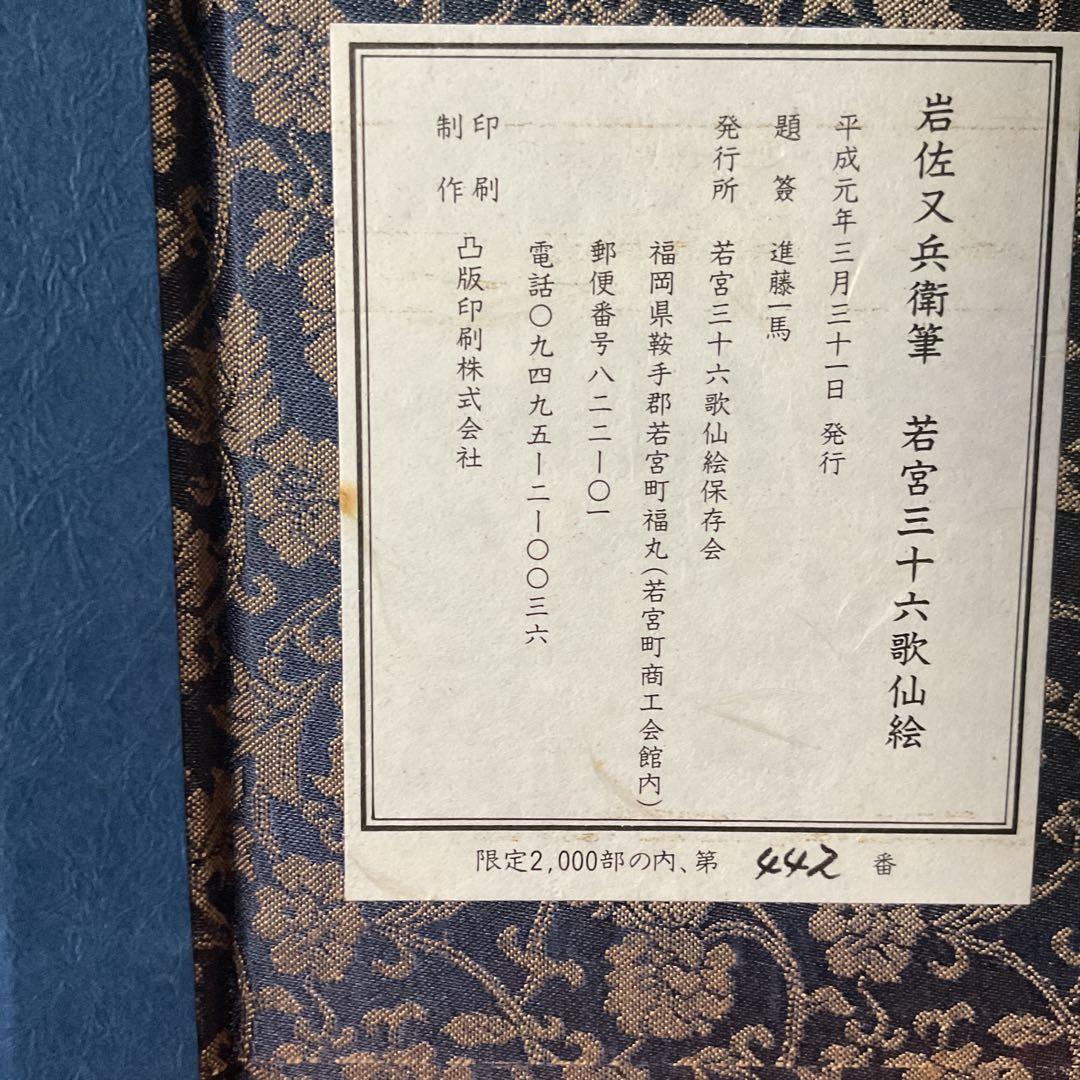 岩佐又兵衛筆 若宮三十六歌仙絵
平成元年三月三十一日 発行
題簽 進藤一馬
発行所 若宮三十六歌仙絵保存会
福岡県鞍手郡若宮町福丸(若宮町商工会館内)
郵便番号八二二ー〇一
電話〇九四九五ー二ー〇〇三六
印刷
制作 凸版印刷株式会社
限定2,000部の内、第 442 番